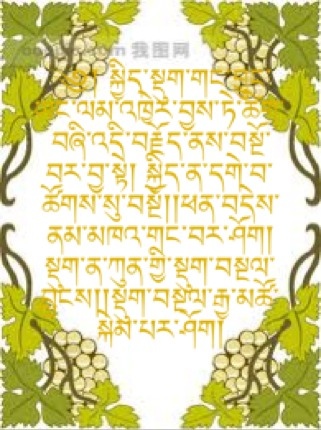 我图网
སྐྱིད་སྡུག་གང་
ལམ་འཁྱེར་བྱས་ཏེ་ཚིག་
བཞི་འདི་བརྗོད་ནས་བསྔོ་
བར་བྱ་སྟེ། སྐྱིད་ན་དགེ་བ་
ཚོགས་སུ་བསྔོ།།ཕན་བདེས་
ནམ་མཁའ་གང་བར་ཤོག།
སྡུག་ན་ཀུན་གྱི་སྡུག་བསྔལ་
།།སྡུག་བསྔལ་རྒྱ་མཚོ་
སྐེམ་པར་ཤོག།